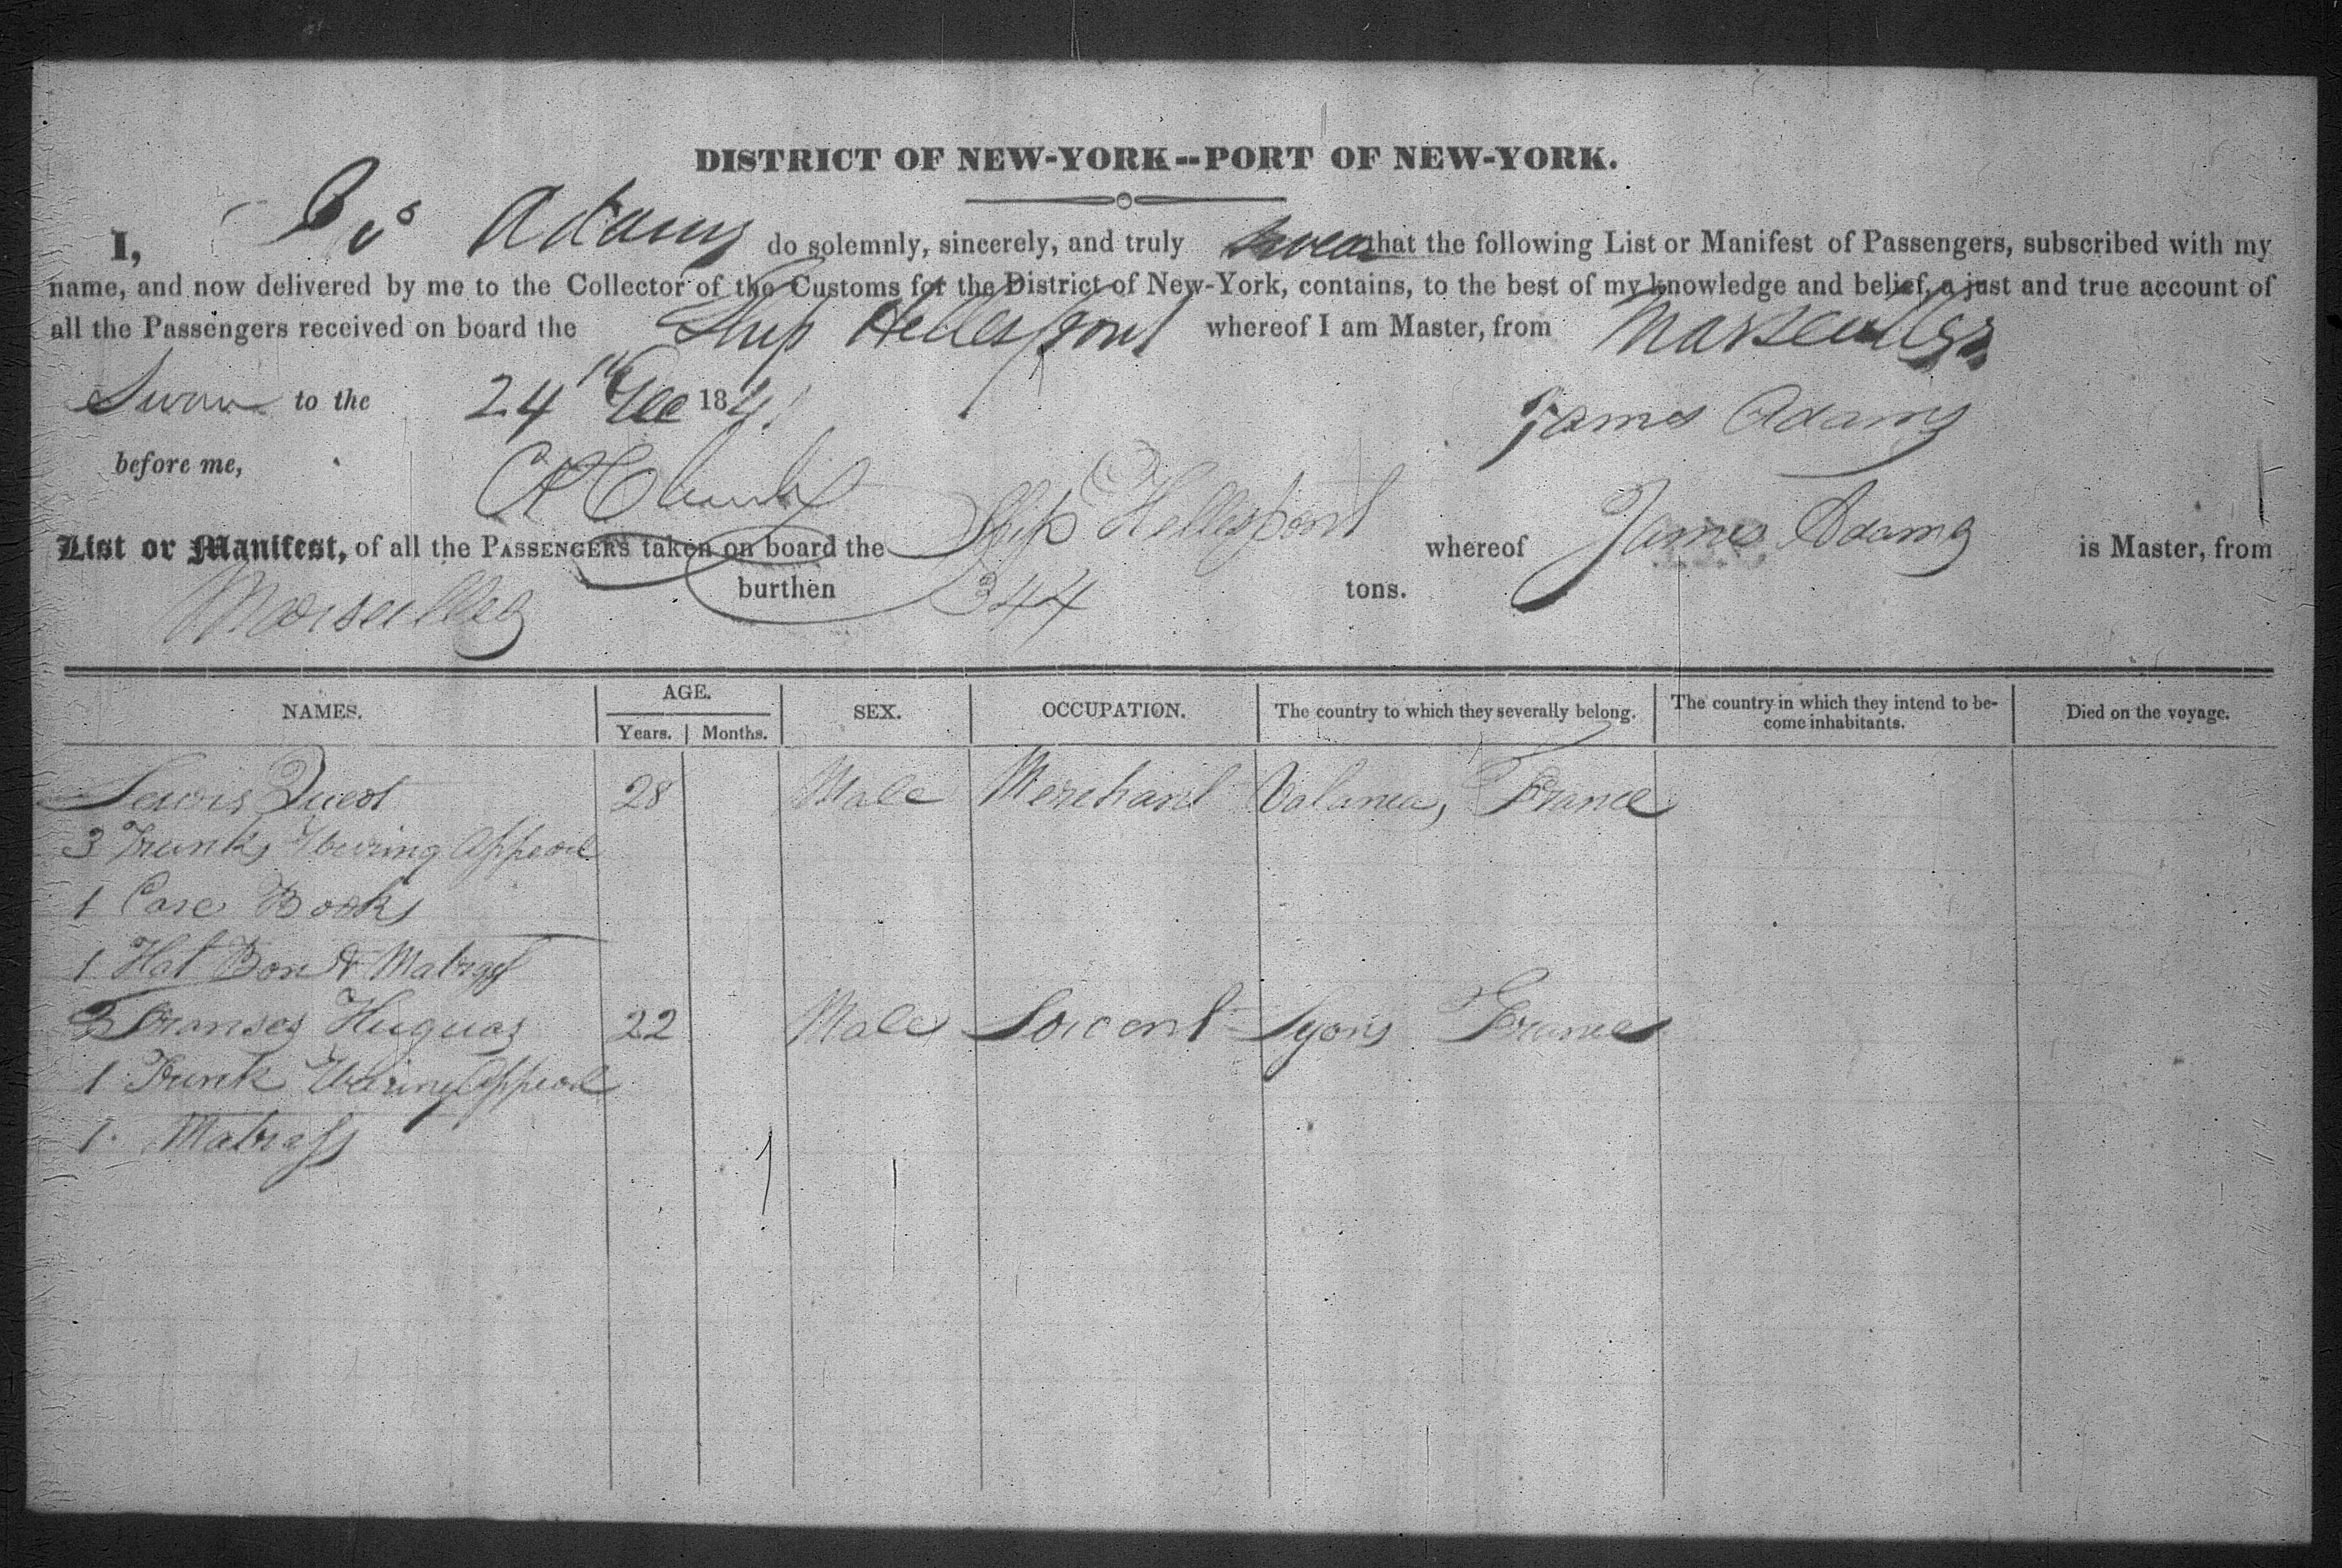 DISTRICT OF NEW-YORK--PORT OF NEW-YORK.
I, Jas Adams do solemnly, sincerely, and truly swear that the following List or Manifest of Passengers, subscribed with my
name, and now delivered by me to the Collector of the Customs for the District of New-York, contains, to the best of my knowledge and belief, a just and true account of
all the Passengers received on board the Ship Hellespont whereof I am Master, from Marseilles
Sworn to the 24th Dec 1841 James Adams
before me,
List or Manifest, of all the PASSENGERS taken on board the Ship Hellespont whereof James Adams is Master, from
Marseilles burthen 344 tons.
NAMES. AGE. SEX. OCCUPATION. The country to which they severally belong. The country in which they intend to be-come inhabitants. Died on the voyage.
Years. Months.
Lewis 28 Male Merchant France
3 Trunks Wearing Appearl
1 Case Books
1 Hat Box & Matrass
Franses Huguas 22 Male Lyons France
1 Trunk Wearing Appearl
1 Matrass